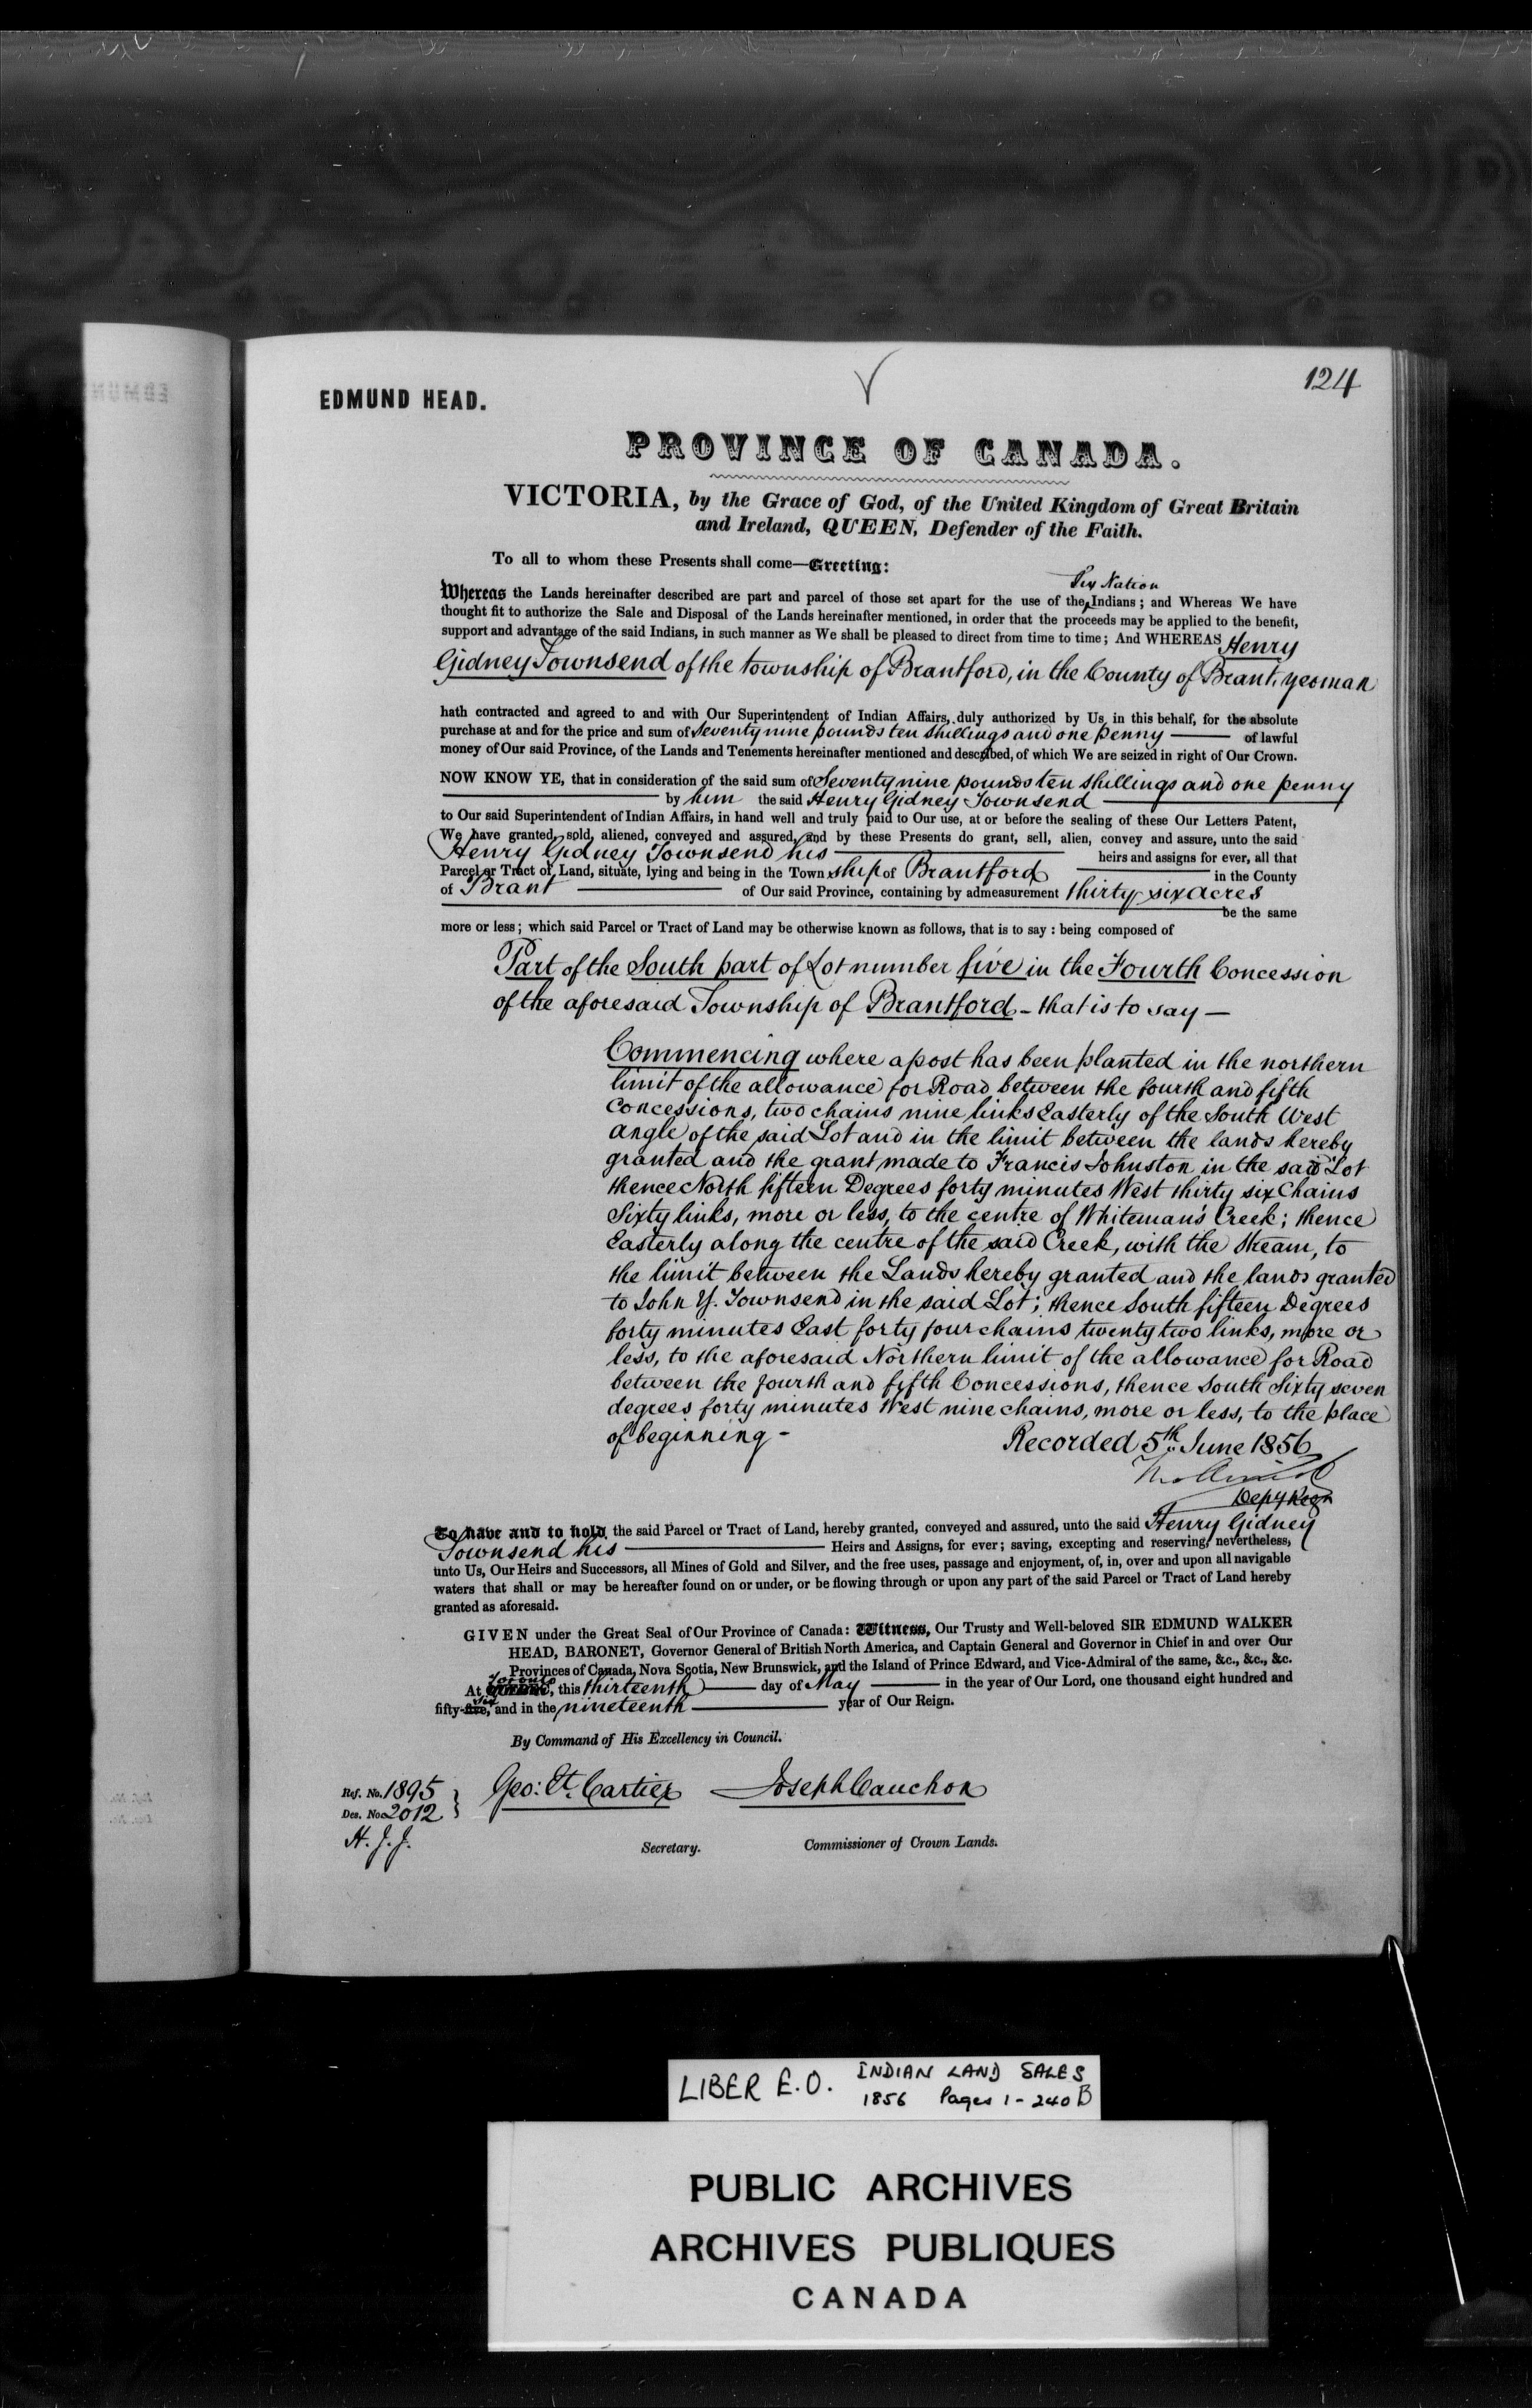 124
EDMUND HEAD.
PROVINCE OF CANADA.
VICTORIA, by the Grace of God, of the United Kingdom of Great Britain
and Ireland, QUEEN, Defender of the Faith.
To all to whom these Presents shall come—Greeting:
Six Nation
Whereas the Lands hereinafter described are part and parcel of those set apart for the use of the Indians; and Whereas We have
thought fit to authorize the Sale and Disposal of the Lands hereinafter mentioned, in order that the proceeds may be applied to the benefit,
support and advantage of the said Indians, in such manner as We shall be pleased to direct from time to time; And WHEREAS Henry
Gidney Townsend of the township of Brantford, in the County of Brant, yeoman
hath contracted and agreed to and with Our Superintendent of Indian Affairs, duly authorized by Us in this behalf, for the absolute
purchase at and for the price and sum of Seventy nine pounds ten shillings and one penny — of lawful
money of Our said Province, of the Lands and Tenements hereinafter mentioned and described, of which We are seized in right of Our Crown.
NOW KNOW YE, that in consideration of the said sum of Seventy nine pounds ten shillings and one penny
— by him the said Henry Gidney Townsend —
to Our said Superintendent of Indian Affairs, in hand well and truly paid to Our use, at or before the sealing of these Our Letters Patent,
We have granted, sold, aliened, conveyed and assured, and by these Presents do grant, sell, alien, convey and assure, unto the said
Henry Gidney Townsend his — heirs and assigns for ever, all that
Parcel or Tract of Land, situate, lying and being in the Town ship of Brantford — in the County
of Brant — of Our said Province, containing by admeasurement thirty six acres
— be the same
more or less; which said Parcel or Tract of Land may be otherwise known as follows, that is to say: being composed of
Part of the South part of Lot number five in the Fourth Concession
of the aforesaid Township of Brantford - that is to say —
Commencing where a post has been planted in the northern
limit of the allowance for Road between the fourth and fifth
Concessions, two chains nine links Easterly of the South West
angle of the said Lot and in the limit between the lands hereby
granted and the grant made to Francis Johnston in the said Lot
thence North fifteen Degrees forty minutes West thirty six Chains
Sixty links, more or less, to the centre of Whiteman's Creek; thence
Easterly along the centre of the said Creek, with the stream, to
the limit between the Lands hereby granted and the lands granted
to John Y. Townsend in the said Lot; thence South fifteen Degrees
forty minutes East forty four chains twenty two links, more or
less, to the aforesaid Northern limit of the allowance for Road
between the fourth and fifth Concessions, thence South Sixty seven
degrees forty minutes West nine chains, more or less, to the place
of beginning -
Recorded 5th June 1856
Depy Regr
To have and to hold, the said Parcel or Tract of Land, hereby granted, conveyed and assured, unto the said Henry Gidney
Townsend his — Heirs and Assigns, for ever; saving, excepting and reserving, nevertheless,
unto Us, Our Heirs and Successors, all Mines of Gold and Silver, and the free uses, passage and enjoyment, of, in, over and upon all navigable
waters that shall or may be hereafter found on or under, or be flowing through or upon any part of the said Parcel or Tract of Land hereby
granted as aforesaid.
GIVEN under the Great Seal of Our Province of Canada: Witness, Our Trusty and Well-beloved SIR EDMUND WALKER
HEAD, BARONET, Governor General of British North America, and Captain General and Governor in Chief in and over Our
Provinces of Canada, Nova Scotia, New Brunswick, and the Island of Prince Edward, and Vice-Admiral of the same, &c., &c., &c.
Toronto
At QUEBEC, this thirteenth — day of May — in the year of Our Lord, one thousand eight hundred and
six
fifty-five, and in the nineteenth — year of Our Reign.
By Command of His Excellency in Council.
Ref. No. 1895
Des. No. 2012
H. J. J.
Geo: Et. Cartier Joseph Cauchon
Secretary. Commissioner of Crown Lands.
LIBER E.O. INDIAN LAND SALES
1856 Pages 1-240B
PUBLIC ARCHIVES
ARCHIVES PUBLIQUES
CANADA